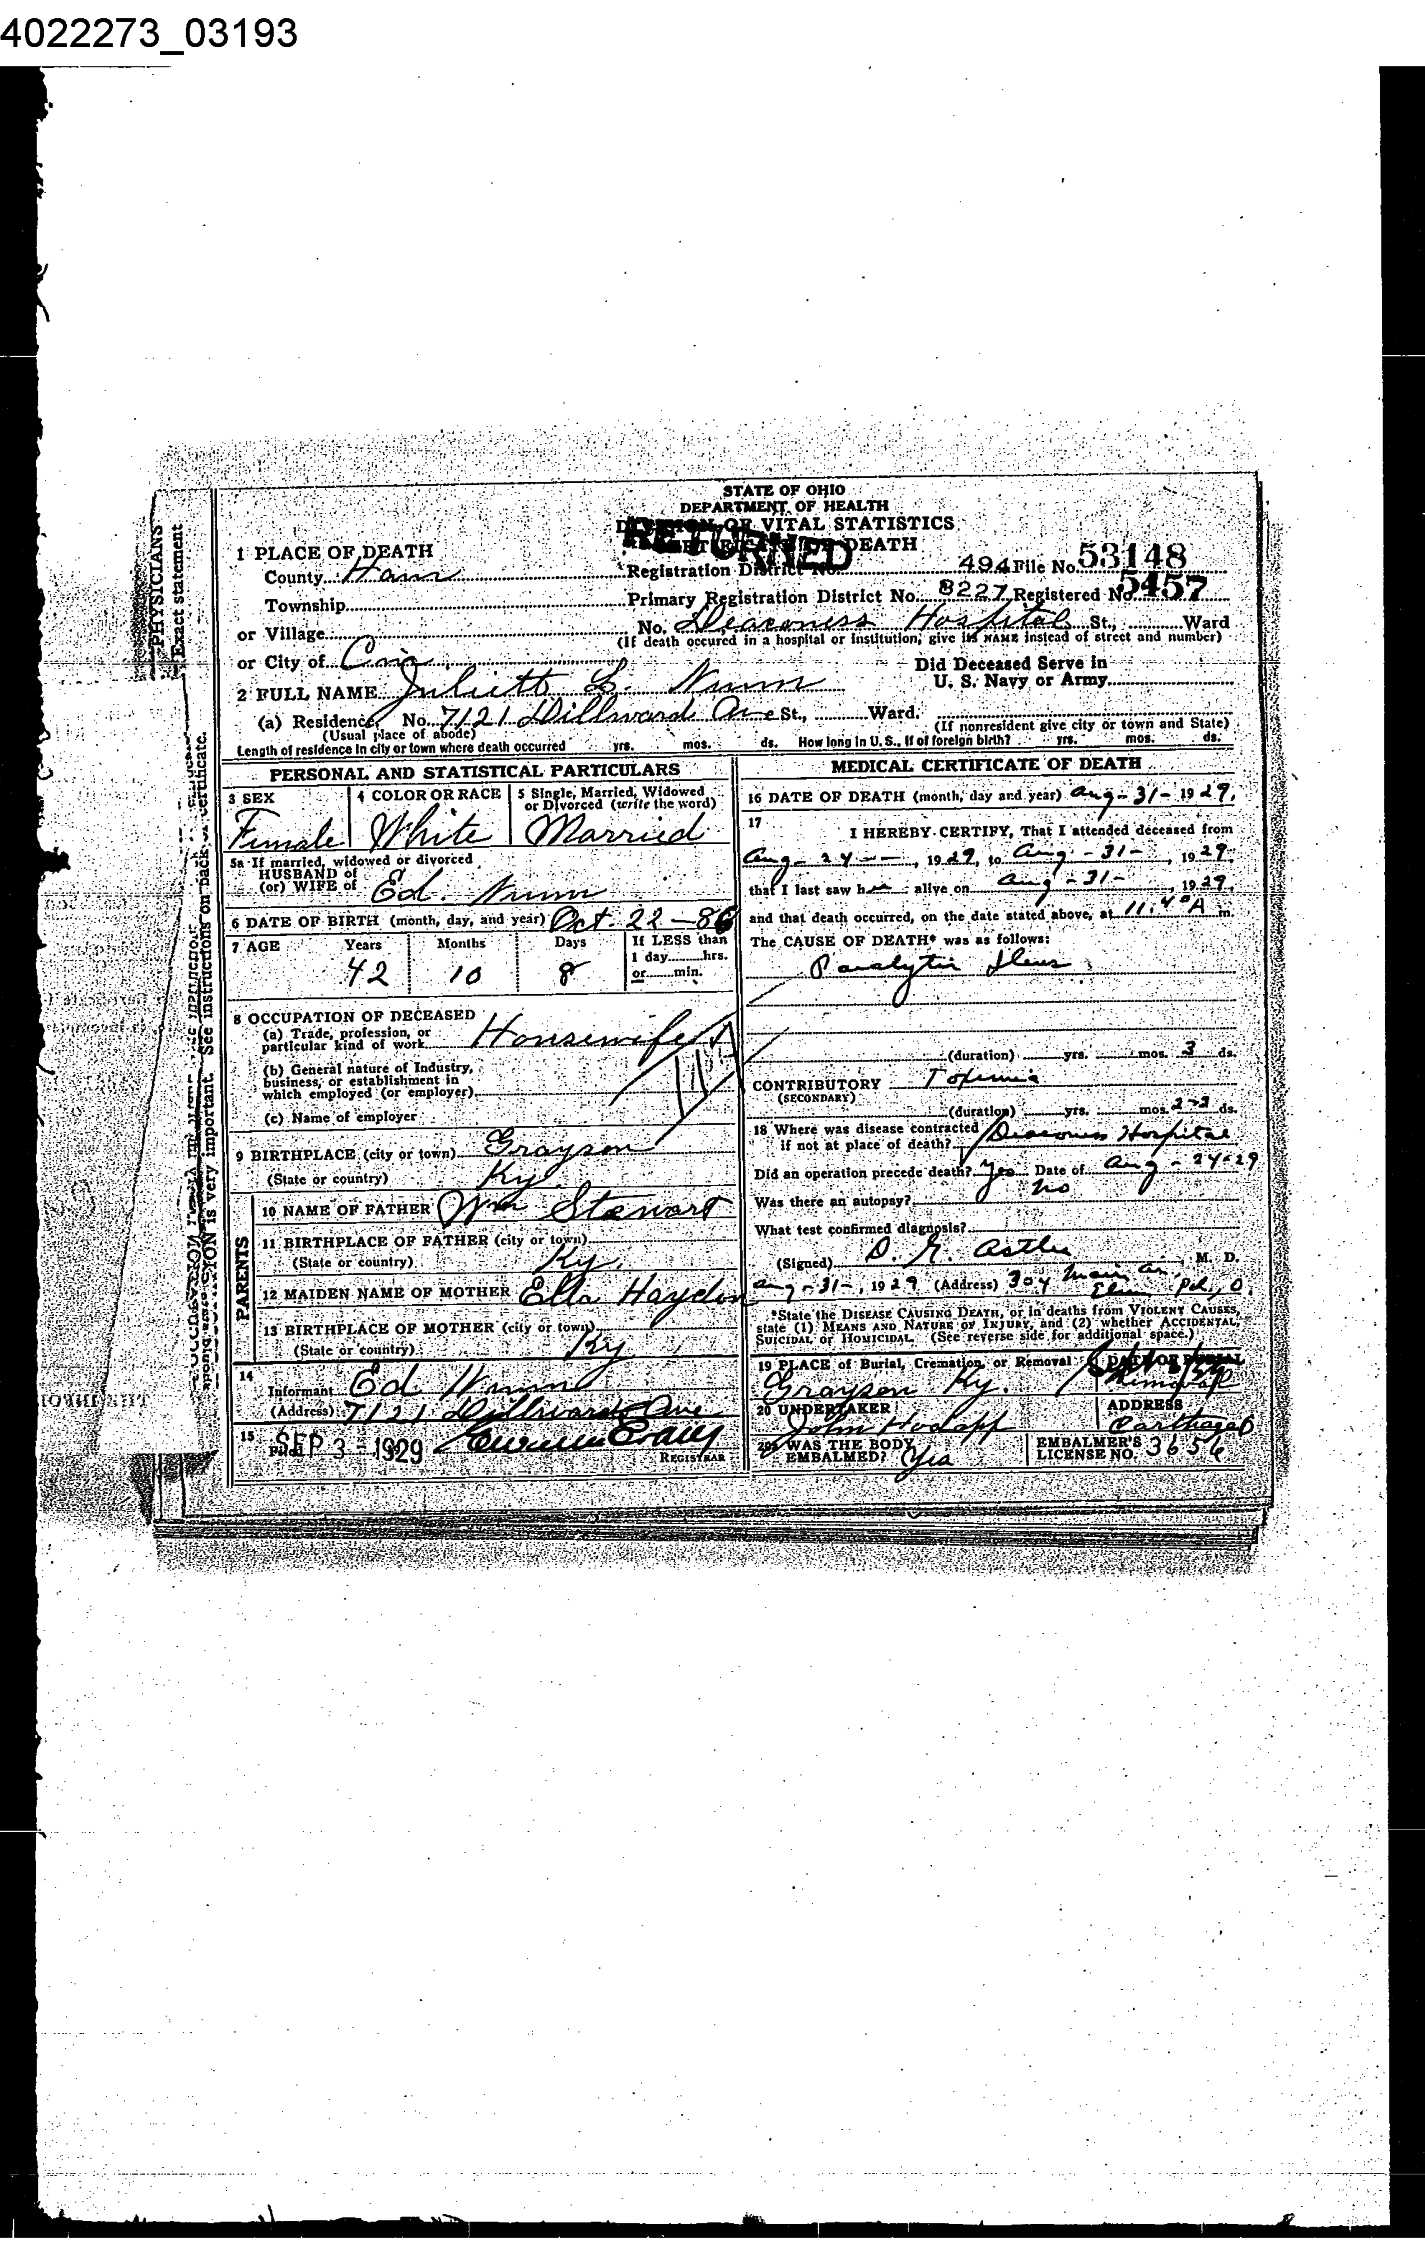 4022273_03193
STATE OF OHIO
DEPARTMENT OF HEALTH
DIVISION OF VITAL STATISTICS
CERTIFICATE OF DEATH
RETURNED
1 PLACE OF DEATH
County Ham
Registration District No. 494 File No. 53148
Township
Primary Registration District No. 8227 Registered No. 5457
or Village
No. Deaconess Hospital St., Ward
(If death occured in a hospital or institution, give its NAME instead of street and number)
or City of Cin
Did Deceased Serve in
U. S. Navy or Army
2 FULL NAME Juliett L. Nunn
(a) Residence, No. 7121 Dillward Ave St., Ward.
(Usual place of abode)
(If nonresident give city or town and State)
Length of residence in city or town where death occurred yrs. mos. ds. How long in U. S., if of foreign birth? yrs. mos. ds.
PERSONAL AND STATISTICAL PARTICULARS
3 SEX
Female
4 COLOR OR RACE
White
5 Single, Married, Widowed
or Divorced (write the word)
Married
5a If married, widowed or divorced
HUSBAND of
(or) WIFE of Ed. Nunn
6 DATE OF BIRTH (month, day, and year) Oct. 22-86
7 AGE Years Months Days If LESS than
1 day hrs.
or min.
42 10 8
8 OCCUPATION OF DECEASED
(a) Trade, profession, or
particular kind of work Housewife
(b) General nature of Industry,
business, or establishment in
which employed (or employer)
(c) Name of employer
9 BIRTHPLACE (city or town) Grayson
(State or country) Ky
PARENTS
10 NAME OF FATHER Wm Stewart
11 BIRTHPLACE OF FATHER (city or town)
(State or country) Ky.
12 MAIDEN NAME OF MOTHER Ella Haydon
13 BIRTHPLACE OF MOTHER (city or town)
(State or country) Ky
14
Informant Ed Nunn
(Address) 7121 Dillward Ave
15
Filed SEP 3 - 1929
REGISTRAR
MEDICAL CERTIFICATE OF DEATH
16 DATE OF DEATH (month, day and year) Aug-31-1929.
17
I HEREBY CERTIFY, That I attended deceased from
Aug-24--, 1929, to Aug-31-, 1929.
that I last saw her alive on Aug-31-, 1929,
and that death occurred, on the date stated above, at 11.40 A m.
The CAUSE OF DEATH* was as follows:
Paralytic Ileus
(duration) yrs. mos. 3 ds.
CONTRIBUTORY Toxemia
(SECONDARY)
(duration) yrs. mos. 2-3 ds.
18 Where was disease contracted
if not at place of death? Deaconess Hospital
Did an operation precede death? Yes Date of Aug-24-29
Was there an autopsy? no
What test confirmed diagnosis?
(Signed) D. E. M. D.
Aug-31-, 1929 (Address) 304 Main
*State the DISEASE CAUSING DEATH, or in deaths from VIOLENT CAUSES,
state (1) MEANS AND NATURE OF INJURY, and (2) whether ACCIDENTAL,
SUICIDAL or HOMICIDAL. (See reverse side for additional space.)
19 PLACE of Burial, Cremation, or Removal
Grayson Ky.
DATE OF BURIAL
20 UNDERTAKER
John Hodapp
ADDRESS
Carthage O
20a WAS THE BODY
EMBALMED? Yes
EMBALMER'S
LICENSE NO. 3654
PHYSICIANS
Exact statement
OCCUPATION is very important. See instructions on back of certificate.